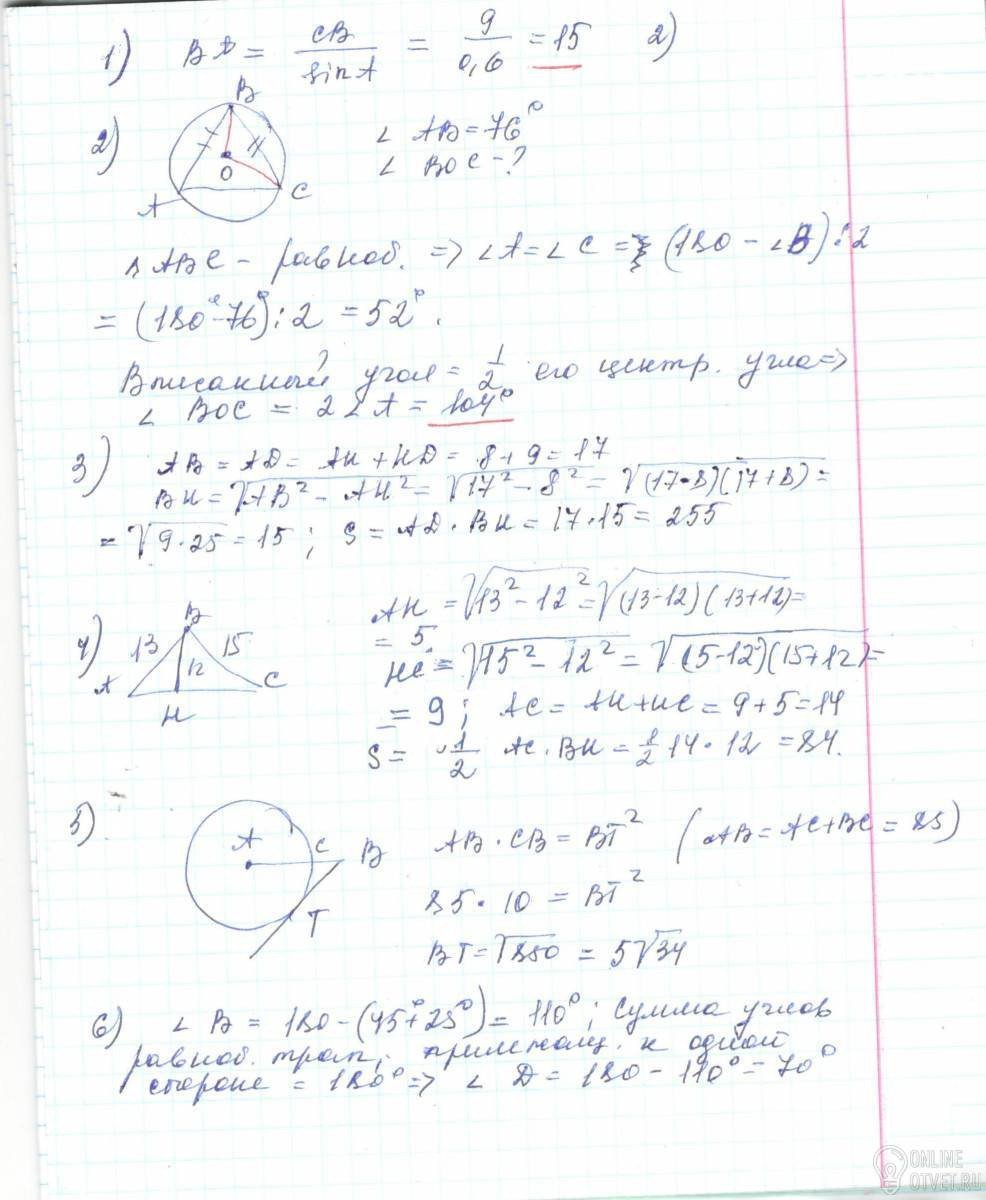 1) BA = CB / sin A = 9 / 0,6 = 15 2)
2) B O A C
∠ AB = 76°
∠ BOC - ?
△ ABC - равноб. => ∠A = ∠C = (180 - ∠B) : 2
= (180° - 76°) : 2 = 52°.
Вписанный угол = 1/2 его центр. угла =>
∠ BOC = 2∠A = 104°
3) AB = AD = AH + HD = 8 + 9 = 17
BH = √AB² - AH² = √17² - 8² = √(17-8)(17+8) =
= √9·25 = 15 ; S = AD · BH = 17·15 = 255
4) B 13 15 12 A H C
AH = √13² - 12² = √(13-12)(13+12) =
= 5.
HC = √15² - 12² = √(15-12)(15+12) =
= 9 ; AC = AH + HC = 9 + 5 = 14
S = 1/2 AC · BH = 1/2 14 · 12 = 84.
5) A C B T
AB · CB = BT² (AB = AC + BC = 85)
85 · 10 = BT²
BT = √850 = 5√34
6) ∠ B = 180 - (45° + 25°) = 110° ; Сумма углов
равноб. трап, прилежащ. к одной
стороне = 180° => ∠ D = 180 - 110° = 70°
ONLINE
OTVET.RU